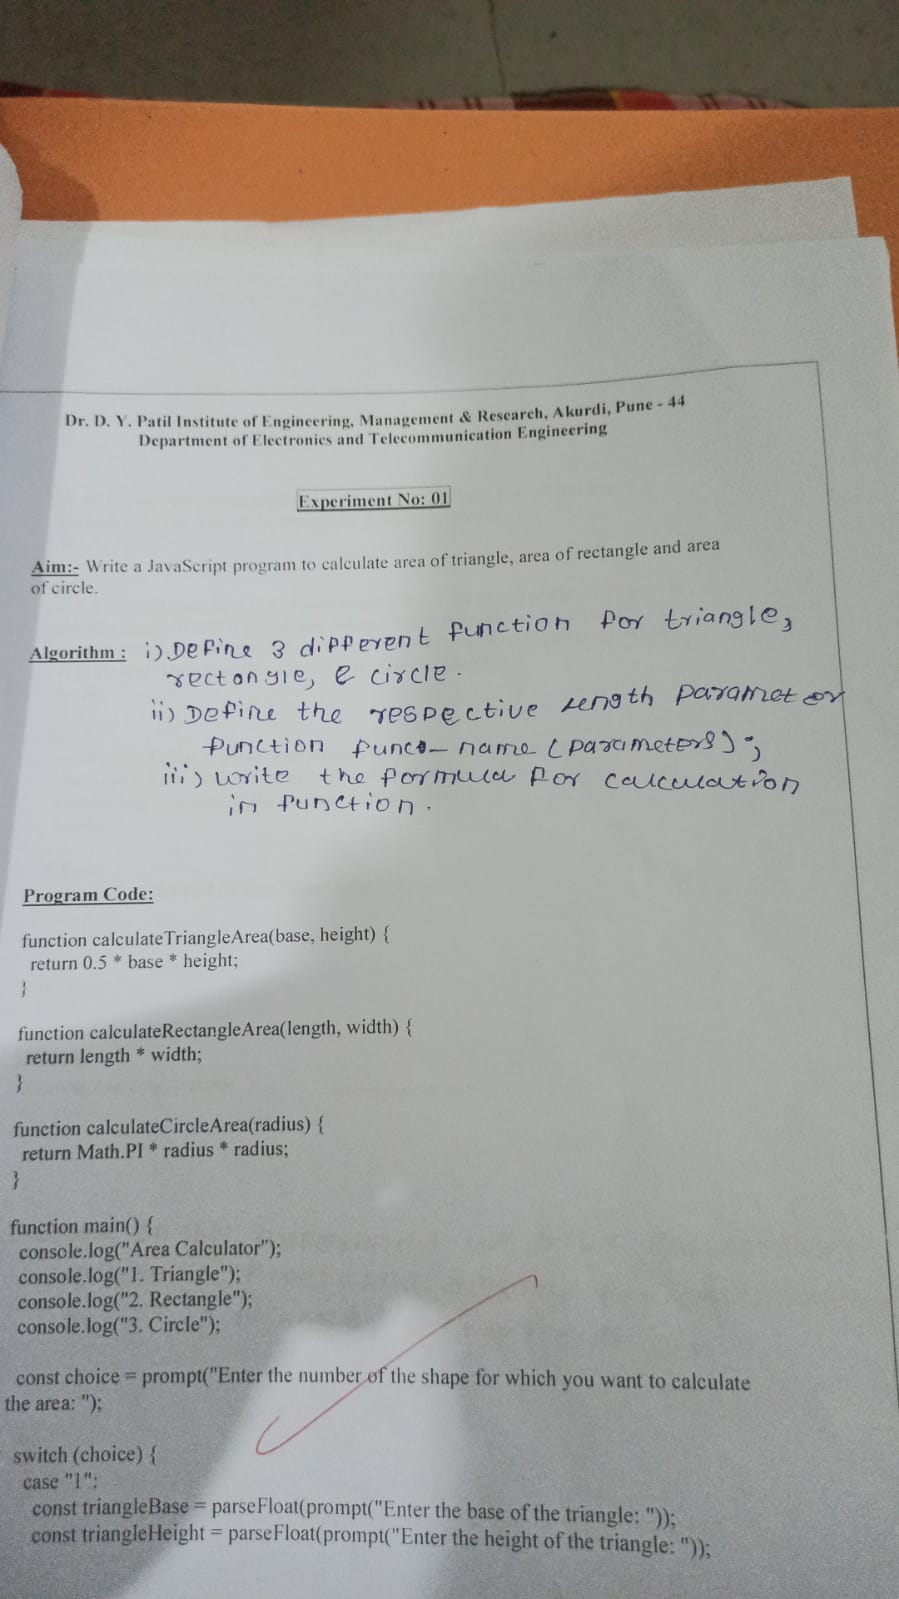 Dr. D. Y. Patil Institute of Engineering, Management & Research, Akurdi, Pune - 44
Department of Electronics and Telecommunication Engineering
Experiment No: 01
Aim:- Write a JavaScript program to calculate area of triangle, area of rectangle and area
of circle.
Algorithm : i) Define 3 different function for triangle,
rectangle, & circle.
ii) Define the respective length parameter
function funct_name (parameters);
iii) write the formula for calculation
in function.
Program Code:
function calculateTriangleArea(base, height) {
return 0.5 * base * height;
}
function calculateRectangleArea(length, width) {
return length * width;
}
function calculateCircleArea(radius) {
return Math.PI * radius * radius;
}
function main() {
console.log("Area Calculator");
console.log("1. Triangle");
console.log("2. Rectangle");
console.log("3. Circle");
const choice = prompt("Enter the number of the shape for which you want to calculate
the area: ");
switch (choice) {
case "1":
const triangleBase = parseFloat(prompt("Enter the base of the triangle: "));
const triangleHeight = parseFloat(prompt("Enter the height of the triangle: "));